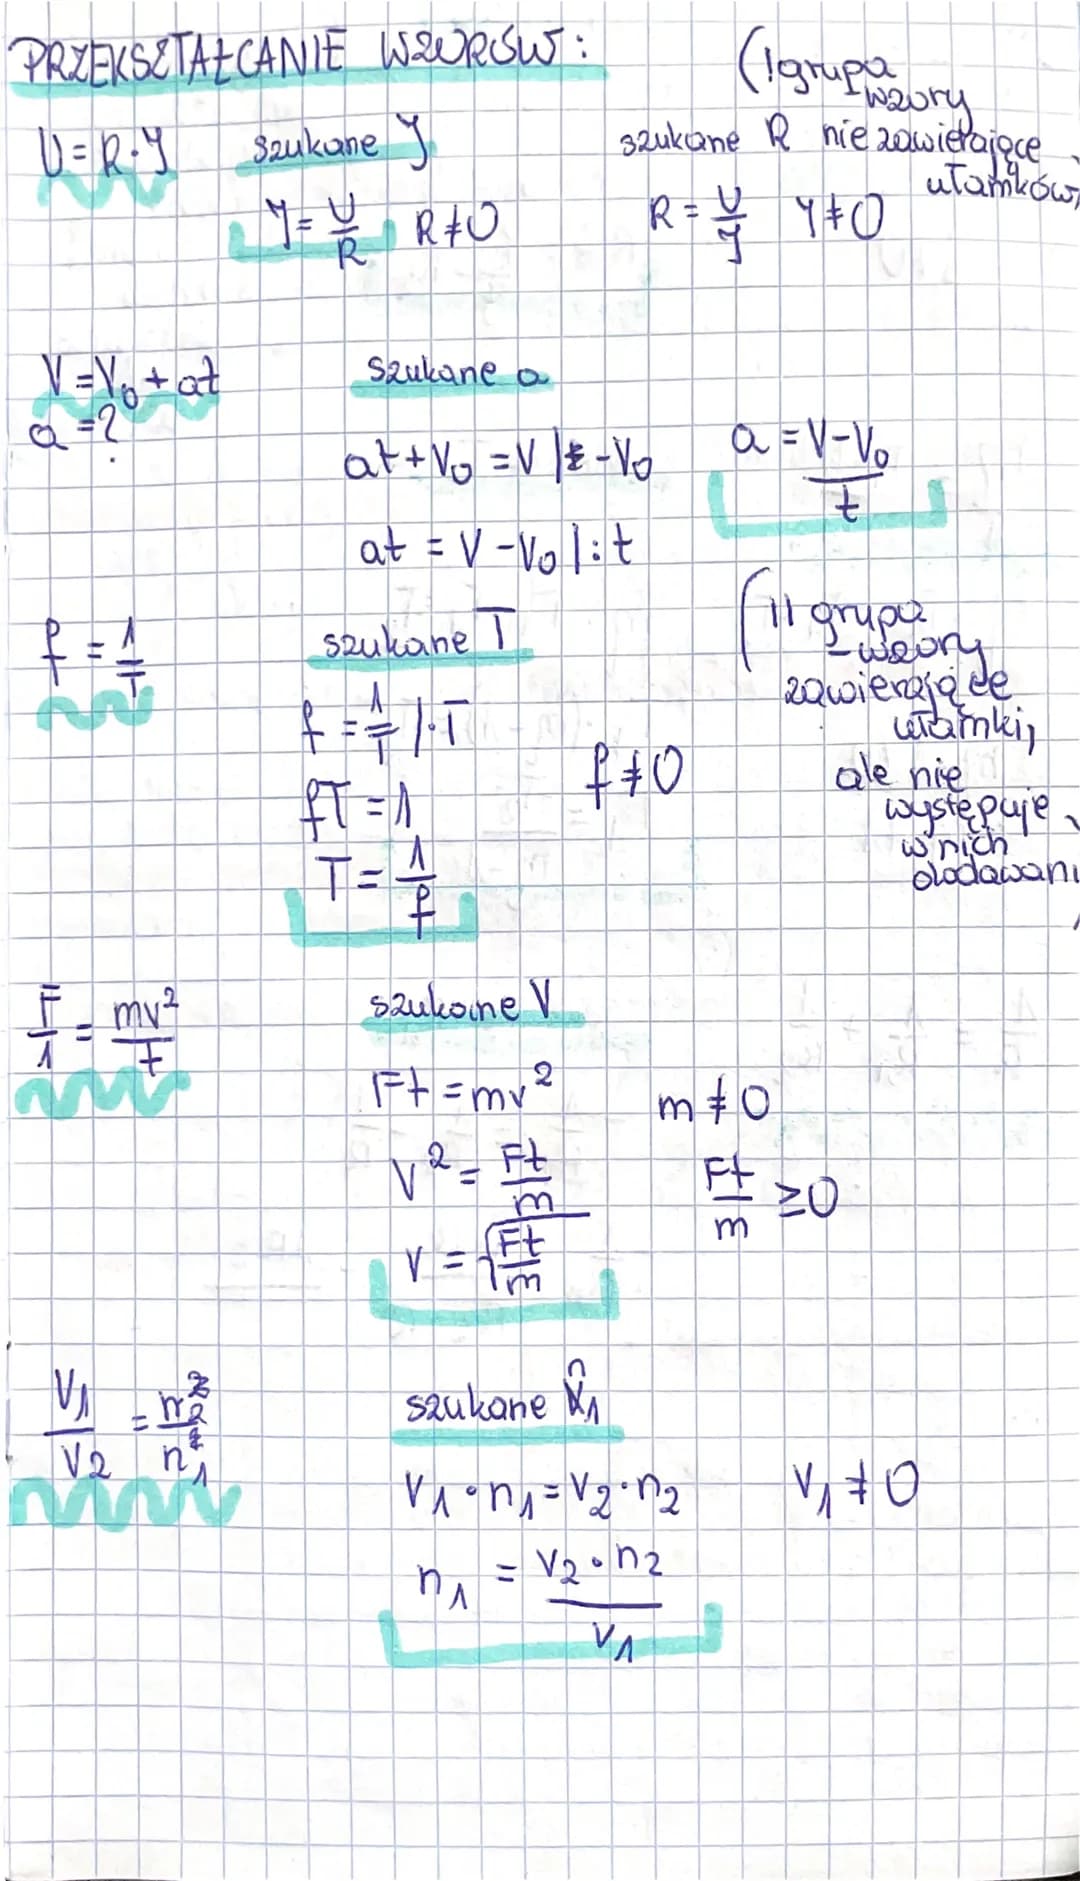 PRZEKSZTAŁCANIE WZORÓW:
(I grupa
wzory
nie zawierające
ułamków)
U = R·J szukane J szukane R
J = U/R R≠0 R = U/J J≠0
V = V₀ + at szukane a
a = ?
at + V₀ = V |-V₀ a = V-V₀/t
at = V - V₀ |:t
(II grupa
- wzory
zawierające
ułamki,
ale nie
występuje
w nich
dodawani
f = 1/T szukane T
f = 1/T |·T
fT = 1 f≠0
T = 1/f
F/1 = mv²/t szukane V
Ft = mv² m≠0
V² = Ft/m Ft/m ≥0
V = √Ft/m
V₁/V₂ = n₂/n₁ szukane n₁
V₁·n₁ = V₂·n₂ V₁≠0
n₁ = V₂·n₂/V₁